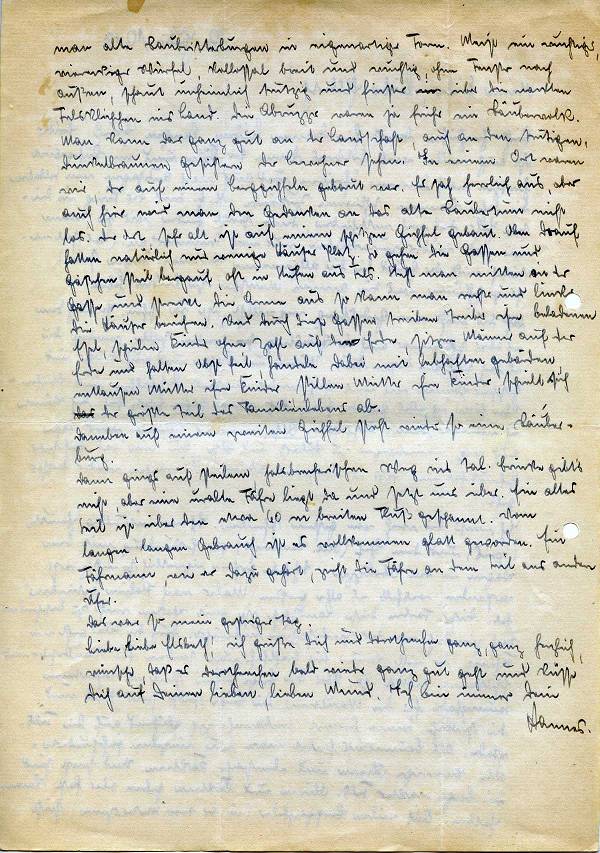 man alte Raubritterburgen in eigenartiger Form. Meist ein wuchtiger,
viereckiger Würfel, kollossal breit und wuchtig, ohne Fenster nach
außen, schaut unheimlich trutzig und finster über die nackten
Felsklippen ins Land. Die Abruzzen waren ja früher ein Räubervolk.
Man kann das ganz gut an der Landschaft, auch an den trutzigen,
dunkelbraunen Gesichtern der Bewohner sehen. In einem Ort waren
wir der auf einem Berggipfel gebaut war. Er sah herrlich aus, aber
auch hier wird man den Gedanken an das alte Räubertum nicht
los. Der Ort, sehr alt, ist auf einem spitzen Gipfel gebaut. Oben drauf
hatten natürlich nur wenige Häuser Platz, so gehen die Gassen und
Gässchen steil bergauf, oft in Stufen aus Fels. Steht man mitten in der
Gasse und streckt die Arme aus so kann man rechts und links
die Häuser berühren. Und durch diese Gassen treiben Treiber ihre beladenen
Esel, spielen Kinder ohne Zahl auf der Erde, sitzen Männer auf der
Erde und halten Obst feil, handeln dabei mit lebhaften Gebärden
entlausen Mütter ihre Kinder, stillen Mütter ihre Kinder, spielt sich
der größte Teil des Familienlebens ab.
Daneben auf einem zweiten Gipfel steht wieder so eine Räuber-
burg.
Dann gings auf steilem halsbrecherischen Weg ins Tal. Brücke gibts
nicht, aber eine uralte Fähre liegt da und setzt uns über. Ein altes
Seil ist über den etwa 60 m breiten Fluß gespannt. Vom
langen, langen Gebrauch ist es vollkommen glatt geworden. Ein
Fährmann, wie er dazu gehört, zieht die Fähre an dem Seil ans andere
Ufer.
Das war so mein gestriger Tag.
Liebe, liebe Elsbeth! ich grüße Dich und Dorothechen ganz, ganz herzlich,
wünsche, daß es Dorothechen bald wieder ganz gut geht und küsse
Dich auf Deinen lieben, lieben Mund. Ich bin immer Dein
Hannes.